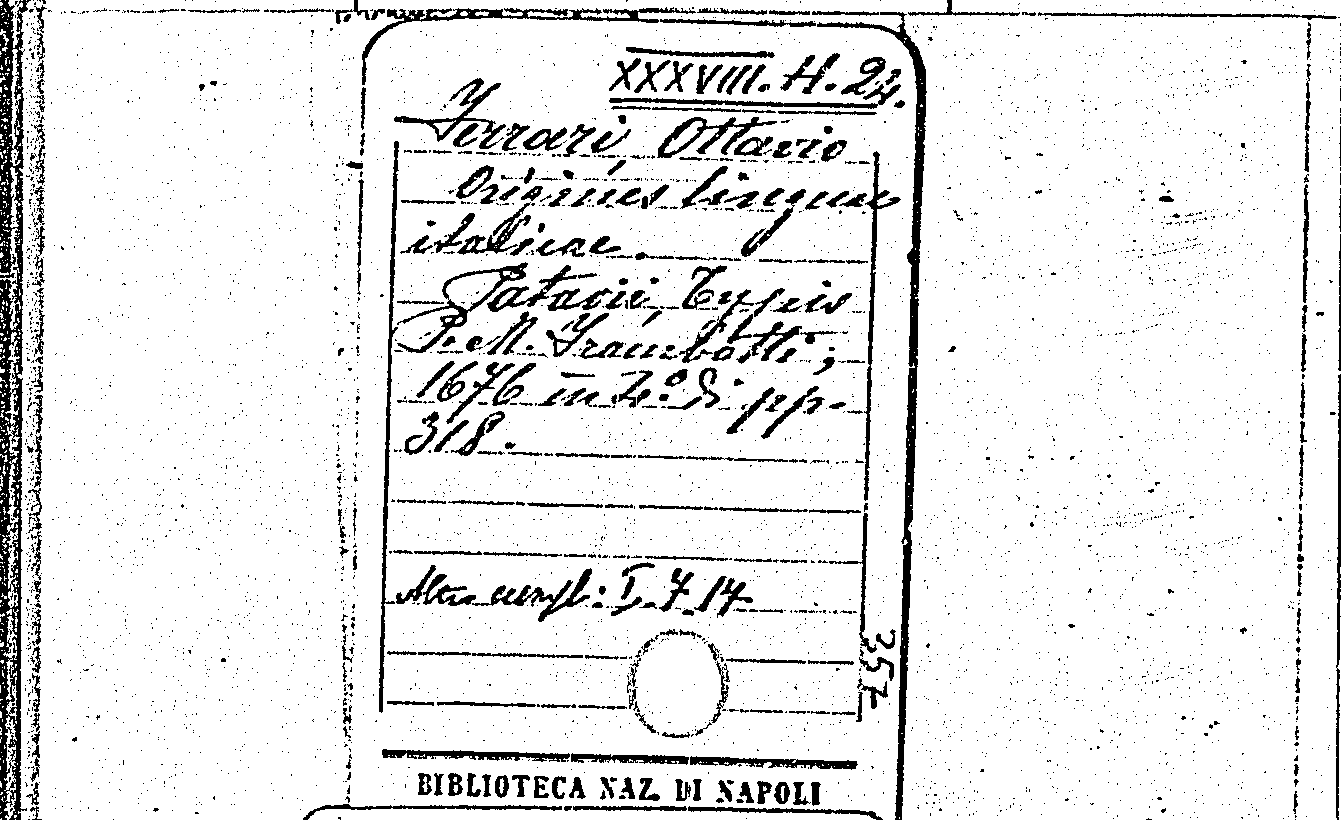 XXXVIII. H. 24.
Ferrari Ottavio
Origines linguae
italicae.
Patavii, Typis
P. M. Frambotti;
1676 in 4.º di pp.
318.
Altro esempl: I. 7. 14
357
BIBLIOTECA NAZ. DI NAPOLI